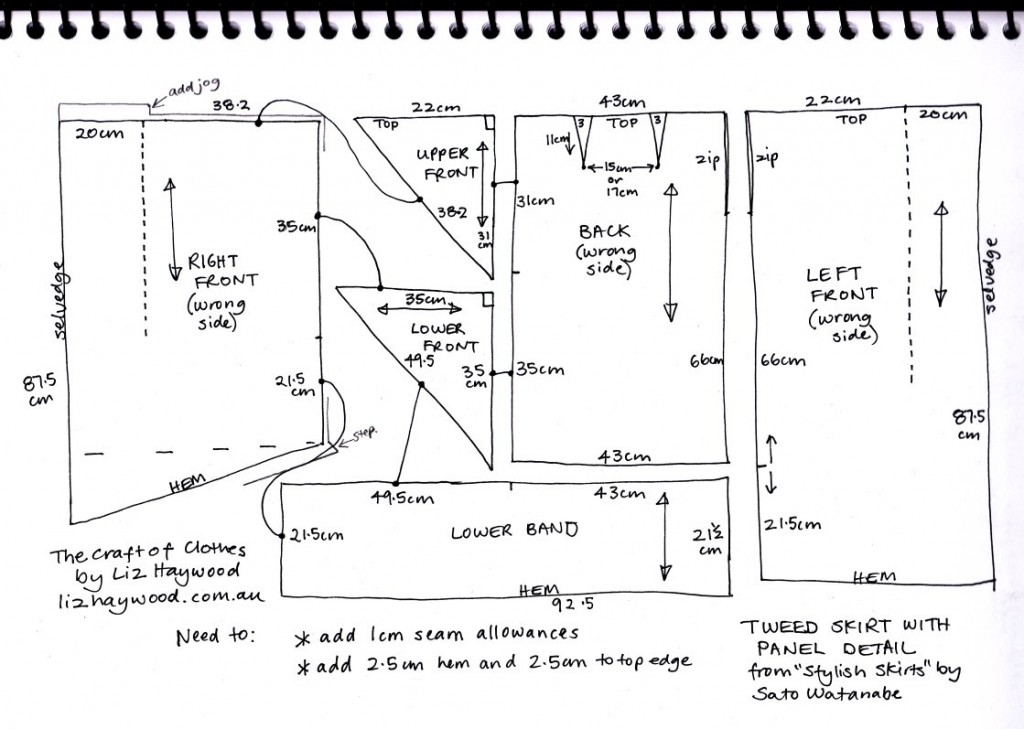 add jog
38.2
20cm
selvedge
87.5
cm
RIGHT
FRONT
(wrong
side)
35cm
21.5
cm
step.
HEM
22cm
TOP
UPPER
FRONT
38.2
31
cm
35cm
LOWER
FRONT
49.5
35
cm
43cm
3
TOP
3
11cm
15cm
or
17cm
zip
31cm
BACK
(wrong
side)
35cm
66cm
43cm
22cm
TOP
20cm
zip
LEFT
FRONT
(wrong
side)
selvedge
66cm
87.5
cm
21.5cm
HEM
49.5cm
43cm
21.5cm
LOWER BAND
21½
cm
HEM
92.5
The Craft of Clothes
by Liz Haywood
lizhaywood.com.au
Need to:
* add 1cm seam allowances
* add 2.5cm hem and 2.5cm to top edge
TWEED SKIRT WITH
PANEL DETAIL
from "Stylish Skirts" by
Sato Watanabe